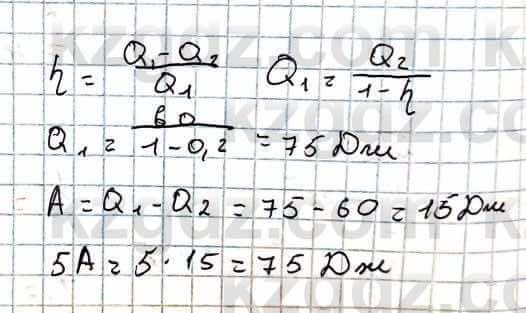 η = (Q₁ - Q₂)/Q₁   Q₁ = Q₂/(1 - η)
Q₁ = 60/(1 - 0,2) = 75 Дж.
A = Q₁ - Q₂ = 75 - 60 = 15 Дж
5A = 5 · 15 = 75 Дж